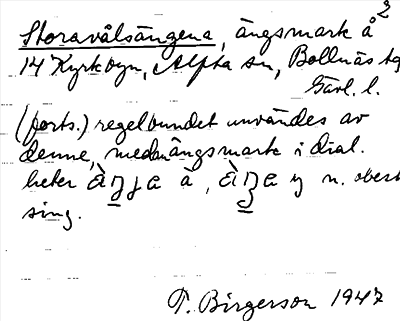 Storavålsängena, ängsmark å 2
14 Kyrkbyn, Alfta sn, Bollnäs tg
Gävl. l.
(forts.) regelbundet användes av
denne, medan ängsmark i dial.
heter à , n. obest
sing.
T. Birgerson 1947